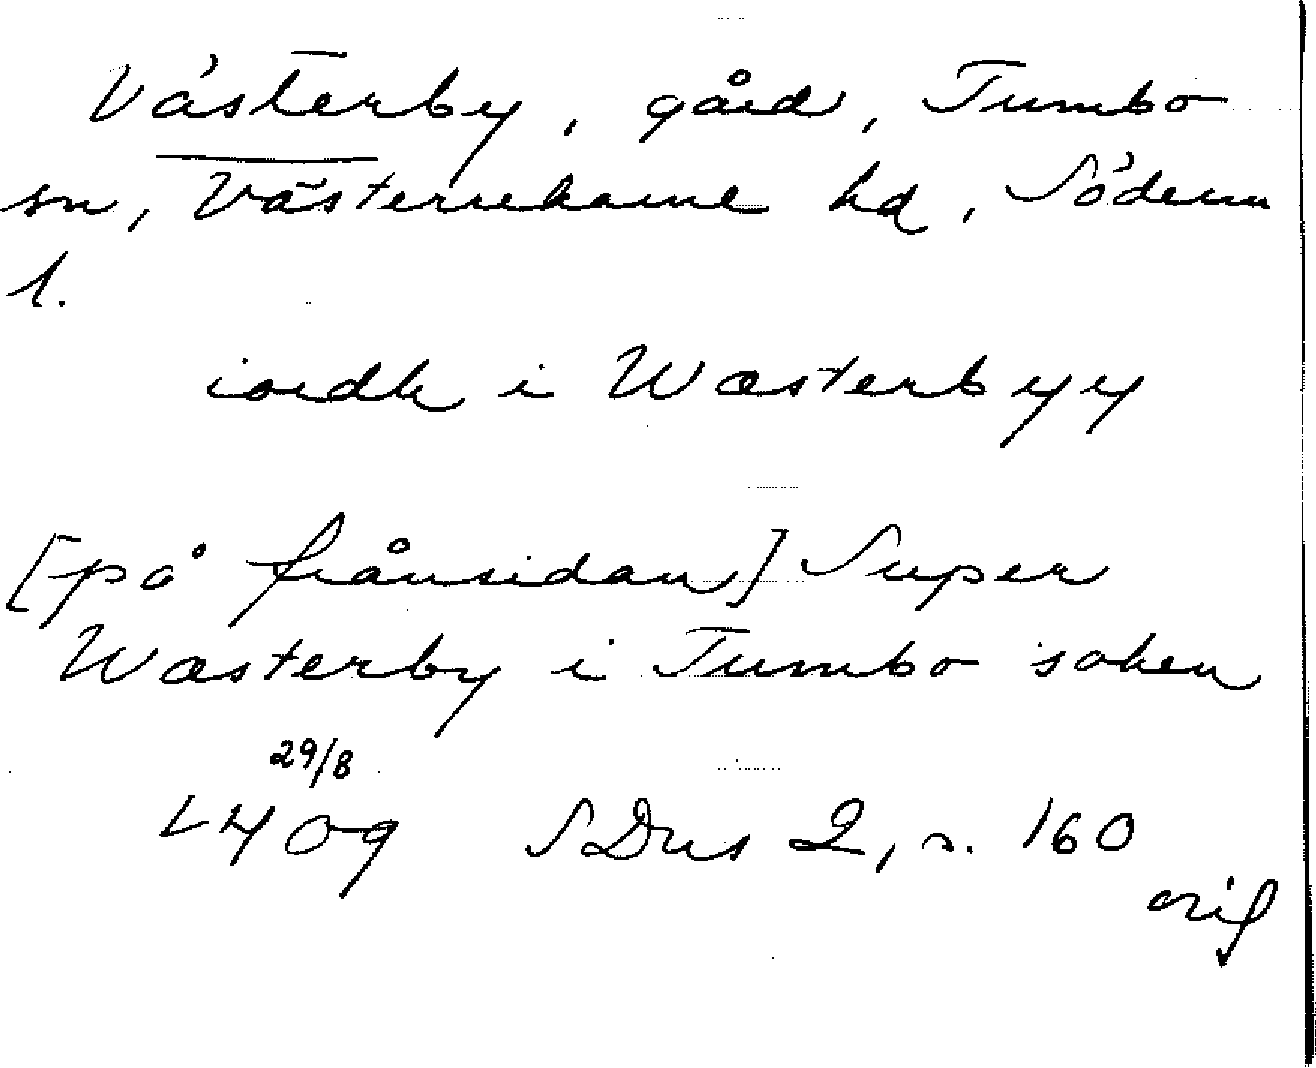 Västerby, gård, Tumbo
sn, Västerrekarne hd, Söderm
l.
iordh i Wæsterbyy
[på frånsidan] Super
Wæsterby i Tumbo soken
29/8
1409 SDns 2, s. 160
orig